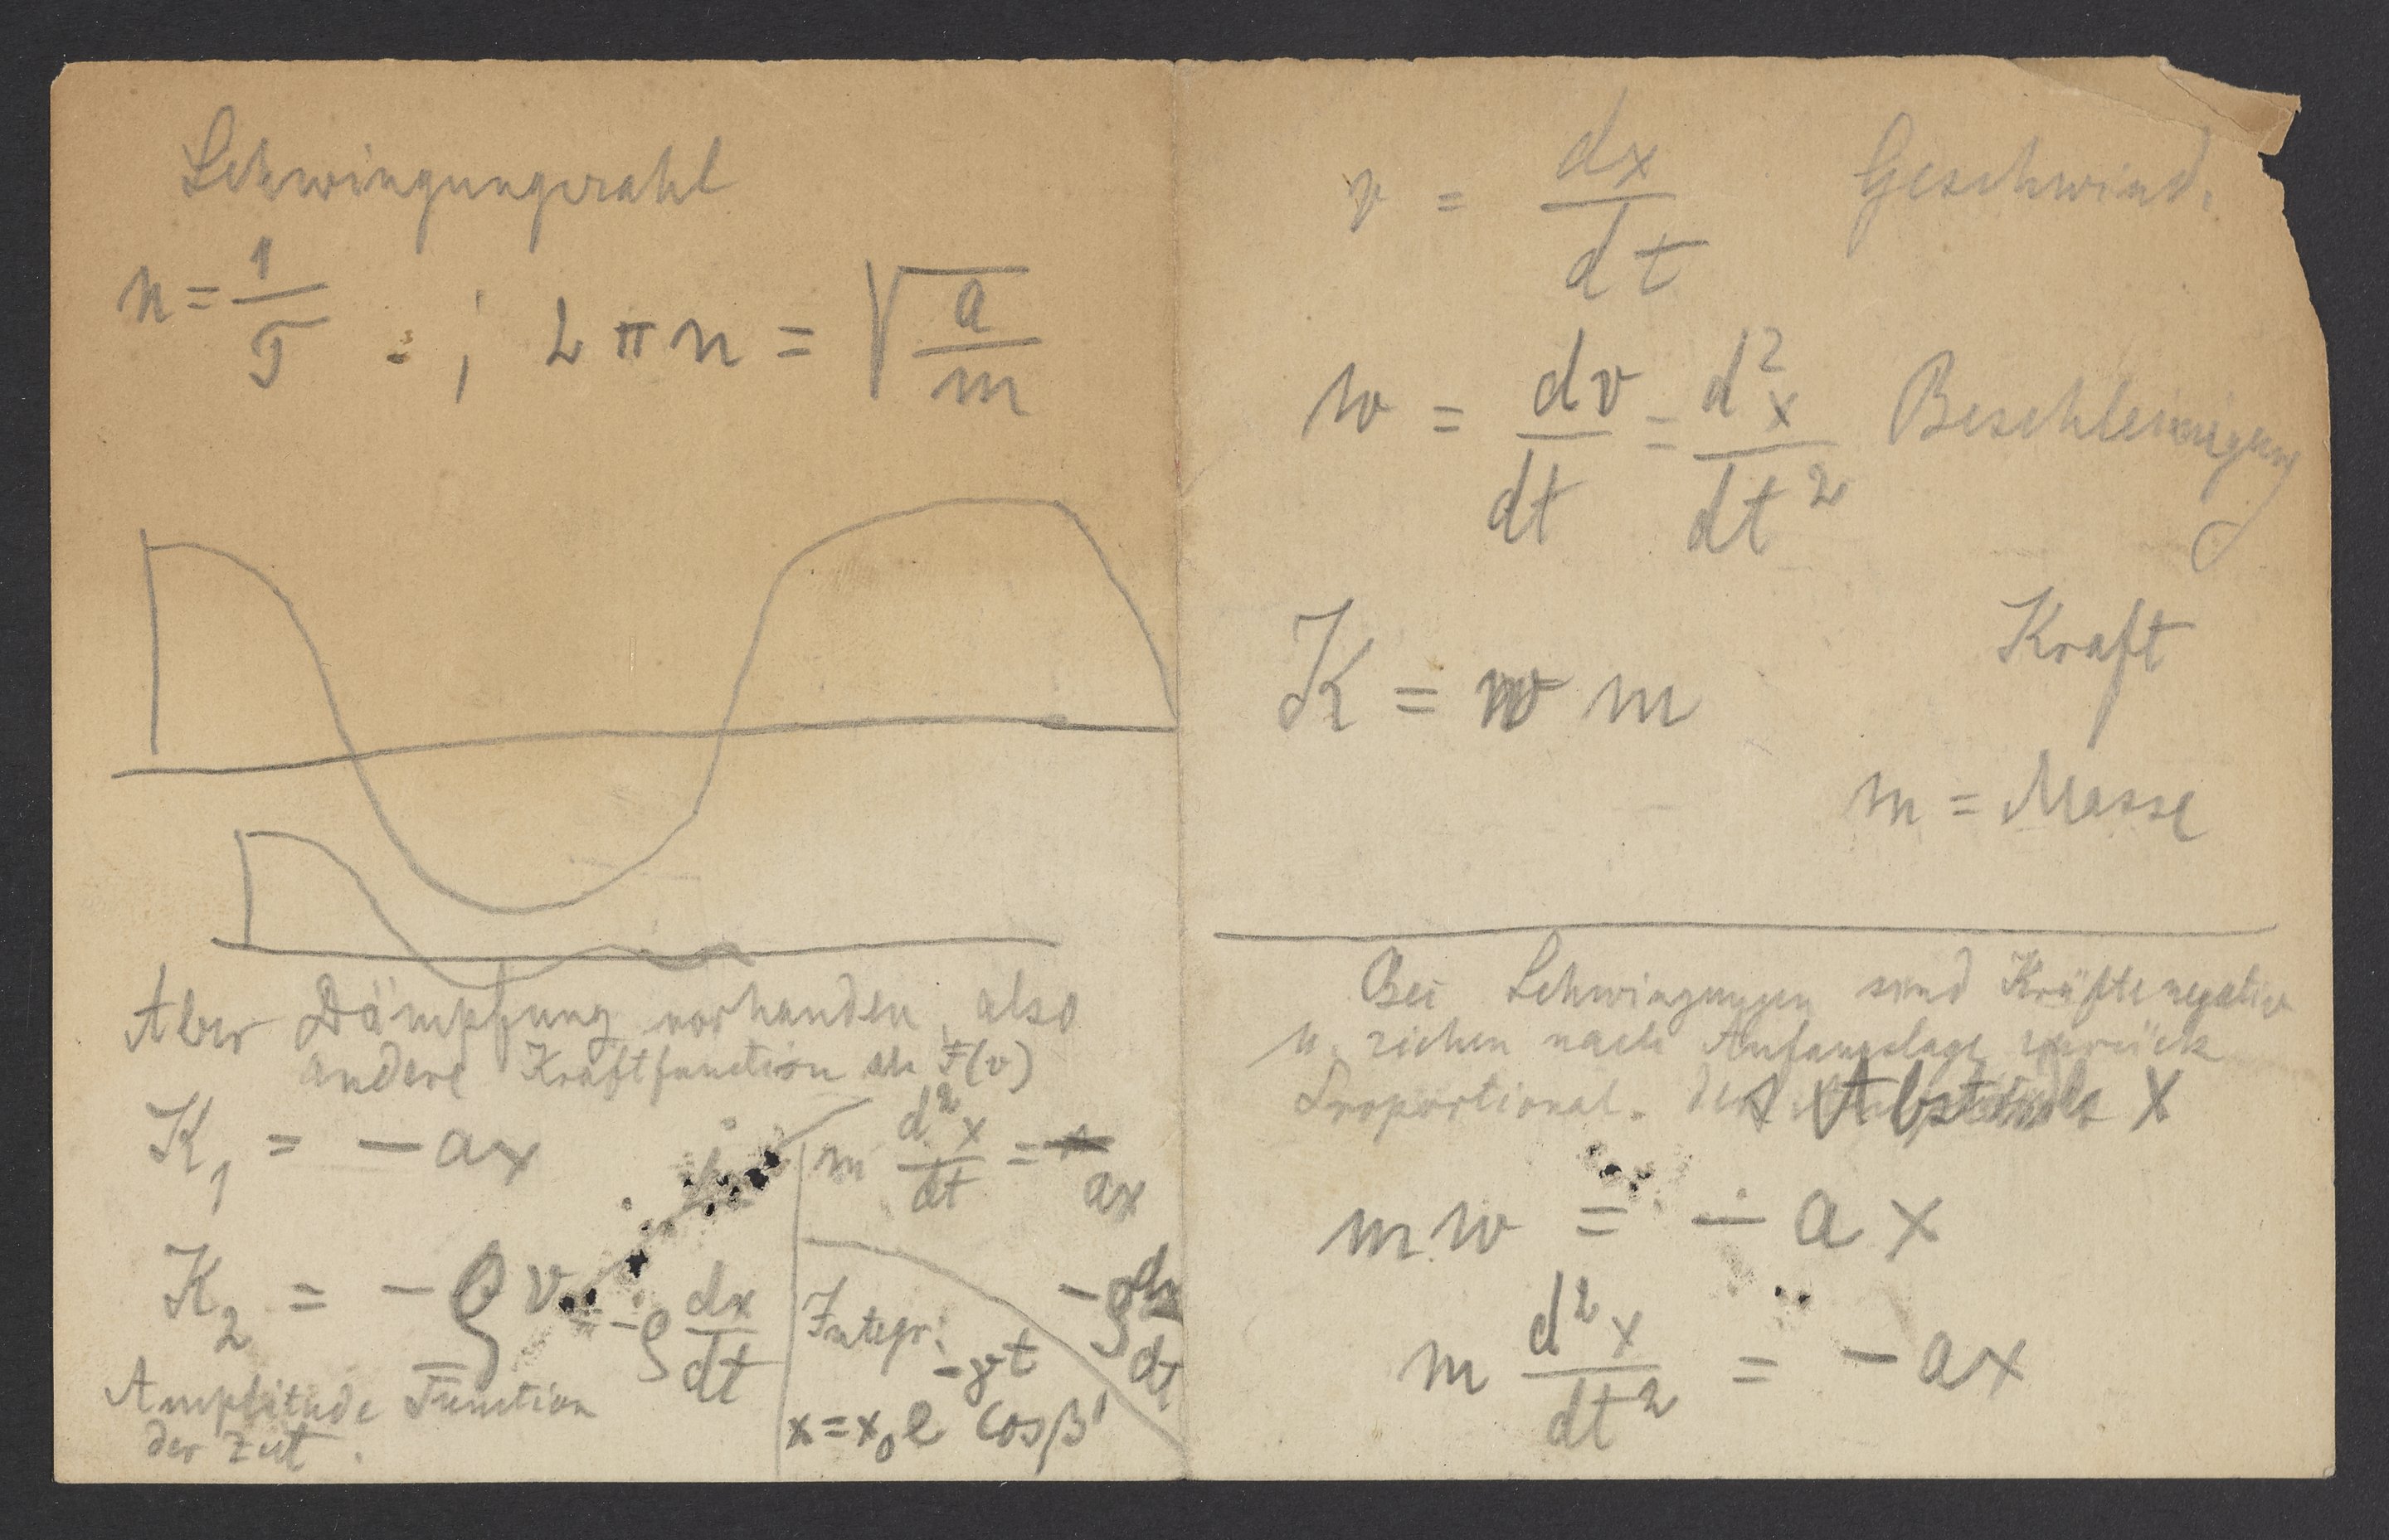 Schwingungszahl
n = 1/T ; 2 π n = √(a/m)
Aber Dämpfung vorhanden, also
andere Kraftfunction F(v)
K₁ = − ax
K₂ = − ρ v = − ρ dx/dt
Amplitude Function
der Zeit.
m d²x/dt = ax
− ρ dx/dt
Integr:
x = x₀ e^(−γt) cos β'
v = dx/dt Geschwind.
w = dv/dt = d²x/dt² Beschleunigung
K = w m Kraft
m = Masse
Bei Schwingungen sind Kräfte negativ
u. ziehen nach Anfangslage zurück
Proportional. des Abstandes x
m w = − a x
m d²x/dt² = − ax